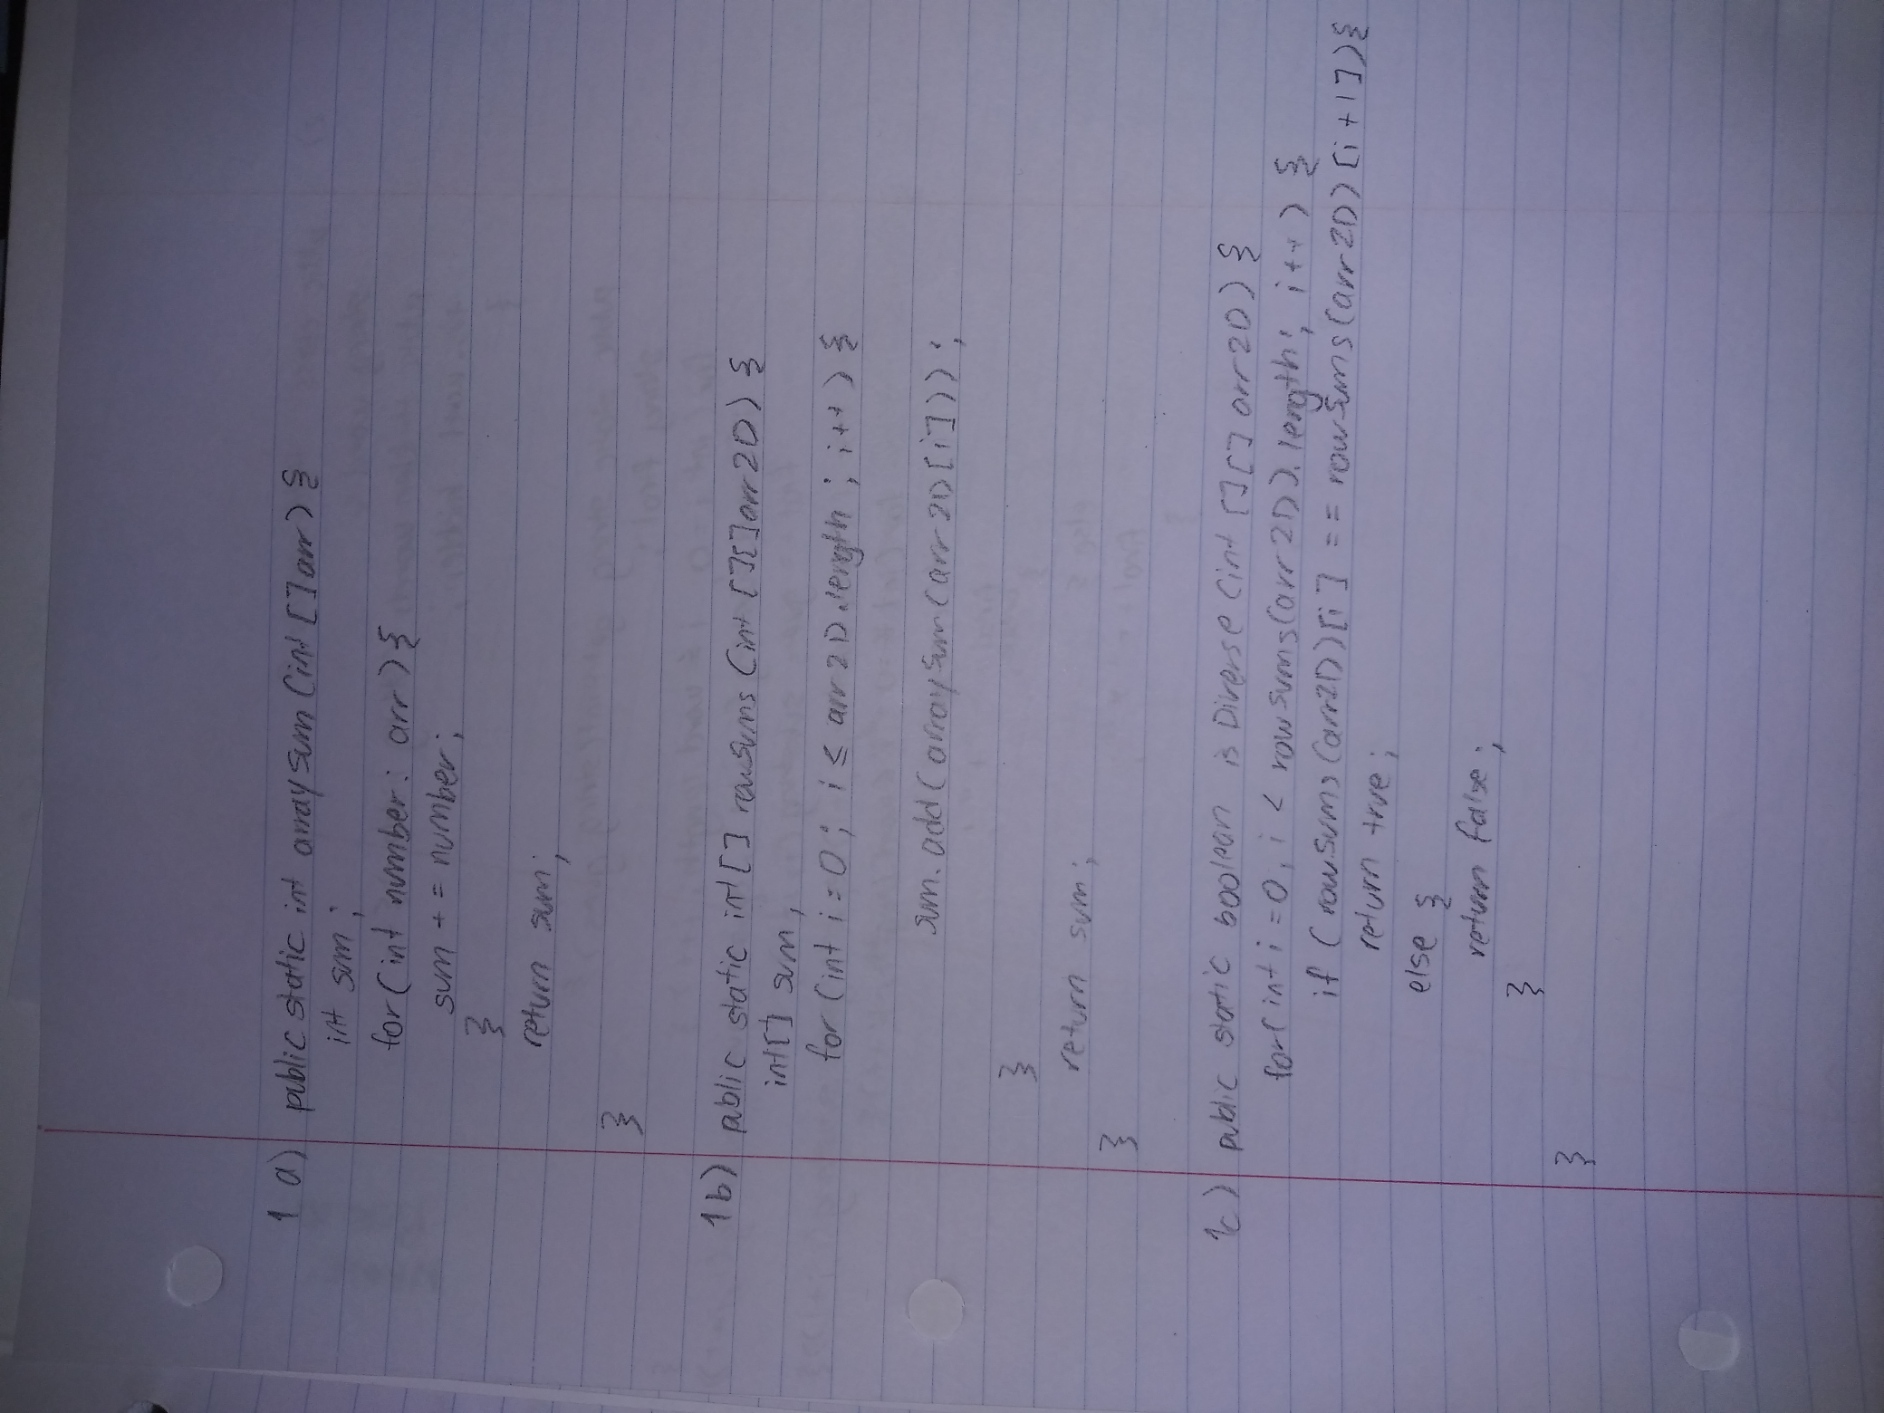 1 a) public static int arraySum (int []arr) {
int sum;
for (int number: arr) {
sum += number;
}
return sum;
}
1b) public static int[] rowSums (int [][]arr2D) {
int[] sum;
for (int i = 0; i ≤ arr2D.length; i++) {
sum.add(arraySum(arr2D[i]));
}
return sum;
}
1c) public static boolean isDiverse (int [][] arr2D) {
for(int i = 0, i < rowSums(arr2D).length; i++) {
if (rowSums(arr2D)[i] == rowSums(arr2D)[i+1]){
return true;
else {
return false;
}
}